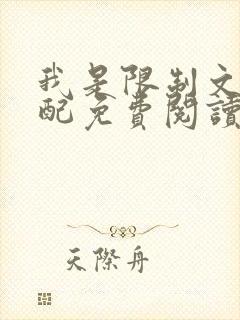 我是限制文
配免費閱讀
天際舟